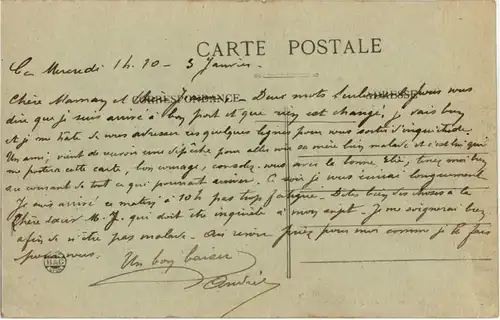 CARTE POSTALE
Ce Mercredi 1h.10 - 3 Janvier.
CORRESPONDANCE ADRESSE
Chère Maman et - Deux mots seulement pour vous
dire que je suis arrivé à bon port et que rien est changé, je vais bien
et je me hâte de vous adresser ces quelques lignes pour vous sortir d'inquiétude.
Un ami, vient de recevoir une dépêche pour aller voir sa mère bien malade et c'est lui qui
me portera cette carte, bon courage, consolez vous avec la bonne tenez moi bien
au courant de tout ce qui pourrait arriver. Ce soir je vous écrirai longuement
Je suis arrivé ce matin à 10h pas trop fatigué. Dites bien des choses à la
Chère Sœur M. J. qui doit être inquiète à mon sujet. Je me soignerai bien
afin de n'être pas malade. Au revoir priez pour moi comme je le fais
pour vous.
Un bon baiser
André